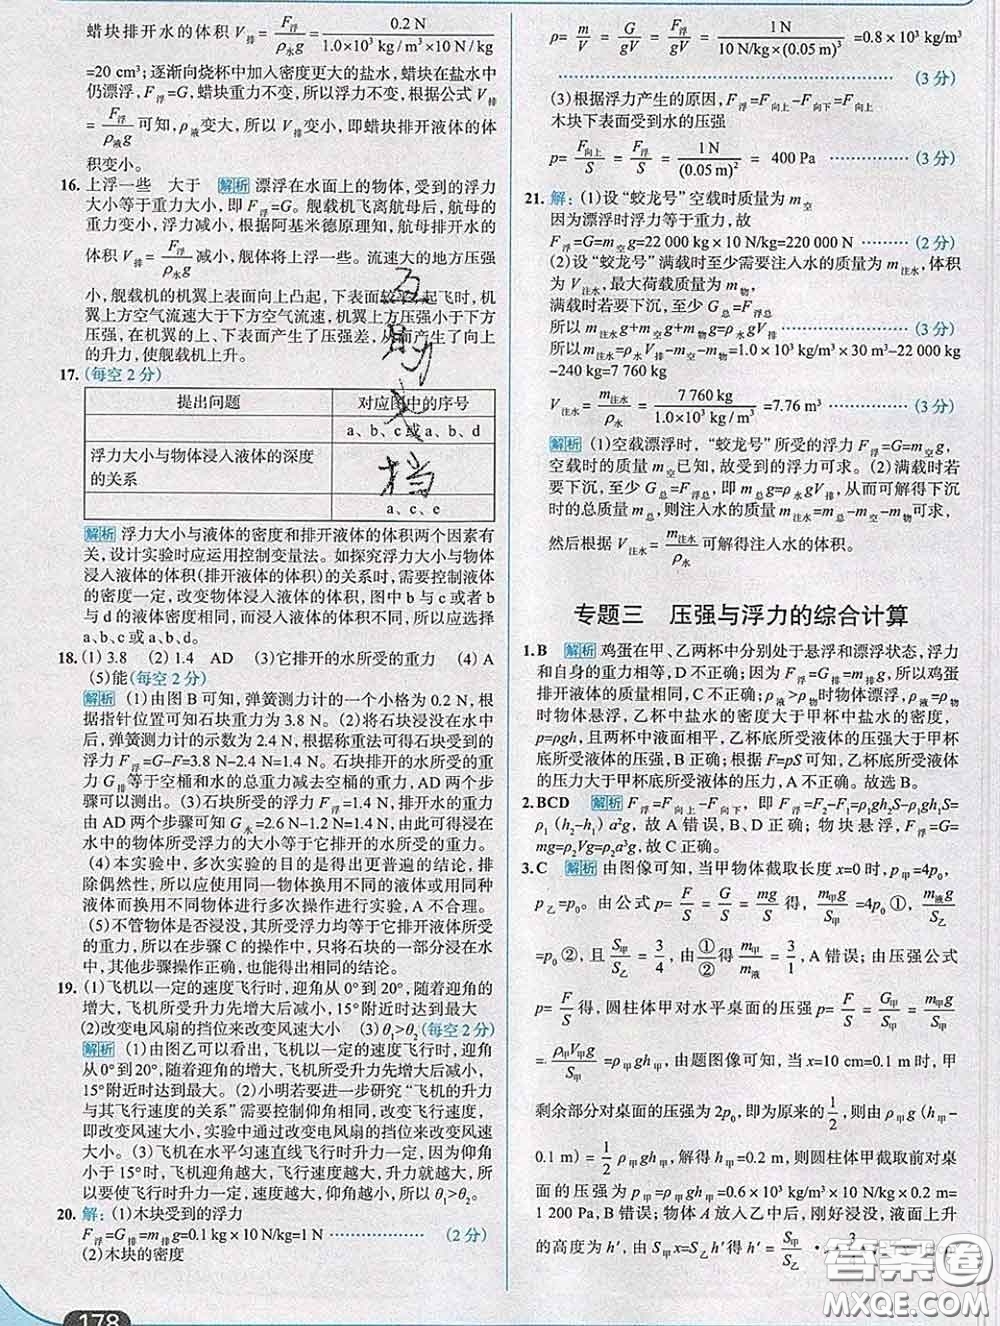 蜡块排开水的体积 V排=F浮/ρ水g=0.2 N/1.0×10³ kg/m³×10 N/kg
=20 cm³;逐渐向烧杯中加入密度更大的盐水,蜡块在盐水中
仍漂浮,F浮=G,蜡块重力不变,所以浮力不变,根据公式 V排
=F浮/ρ液g 可知,ρ液变大,所以 V排变小,即蜡块排开液体的体
积变小。
16. 上浮一些 大于 解析 漂浮在水面上的物体,受到的浮力
大小等于重力大小,即 F浮=G。舰载机飞离航母后,航母的
重力变小,浮力减小,根据阿基米德原理知,航母排开水的
体积 V排=F浮/ρ水g 减小,舰体将上浮一些。流速大的地方压强
小,舰载机的机翼上表面向上凸起,下表面较平,起飞时,机
翼上方空气流速大于下方空气流速,机翼上方压强小于下方
压强,在机翼的上、下表面产生了压强差,从而产生了向上
的升力,使舰载机上升。
17. (每空 2 分)
提出问题 对应图中的序号
a、b、c或a、b、d
浮力大小与物体浸入液体的深度
的关系
a、c、e
解析 浮力大小与液体的密度和排开液体的体积两个因素有
关,设计实验时应运用控制变量法。如探究浮力大小与物体
浸入液体的体积(排开液体的体积)的关系时,需要控制液体
的密度一定,改变物体浸入液体的体积,图中 b 与 c 或者 b
与 d 的液体密度相同,而浸入液体的体积不同,所以应选择
a、b、c 或 a、b、d。
18. (1) 3.8 (2) 1.4 AD (3)它排开的水所受的重力 (4) A
(5)能(每空 2 分)
解析 (1)由图 B 可知,弹簧测力计的一个小格为 0.2 N,
根据指针位置可知石块重力为 3.8 N。(2)将石块浸没在水中
后,弹簧测力计的示数为 2.4 N,根据称重法可得石块受到的
浮力 F浮=G-F=3.8 N-2.4 N=1.4 N。石块排开的水所受的重
力 G排等于空桶和水的总重力减去空桶的重力,AD 两个步
骤可以测出。(3)石块所受的浮力 F浮=1.4 N,排开水的重力
由 AD 两个步骤可知 G水=2.6 N-1.2 N=1.4 N,由此可得浸在水
中的物体所受浮力的大小等于它排开的水所受的重力。
(4)本实验中,多次实验的目的是得出更普遍的结论,排
除偶然性,所以应使用同一物体换用不同的液体或用同种
液体而换用不同物体进行多次操作进行实验,A 不合理。
(5)不管物体是否浸没,其所受浮力均等于它排开液体所受
的重力,所以在步骤 C 的操作中,只将石块的一部分浸在水
中,其他步骤操作正确,也能得出相同的结论。
19. (1)飞机以一定的速度飞行时,迎角从 0°到 20°,随着迎角的
增大,飞机所受升力先增大后减小,15°附近时达到最大
(2)改变电风扇的挡位来改变风速大小 (3) θ₁>θ₂(每空 2 分)
解析 (1)由图乙可以看出,飞机以一定的速度飞行时,迎角
从 0°到 20°,随着迎角的增大,飞机所受升力先增大后减小,
15°附近时达到最大。(2)小明若要进一步研究“飞机的升力
与其飞行速度的关系”需要控制仰角不变,改变飞行速度,
即改变风速大小,实验中通过改变电风扇的挡位来改变风速
大小。(3)飞机在水平匀速直线飞行时升力不变,因为仰角
小于 15°时,飞机迎角越大,飞行速度越大,升力就越大,所
以要使飞行升力一定,速度越大,仰角越小,所以 θ₁>θ₂。
20. 解:(1)木块受到的浮力
F浮=G排=m排g=0.1 kg×10 N/kg=1 N ……………(2 分)
(2)木块的密度
178
ρ=m/V=G/gV=F浮/gV=1 N/10 N/kg×(0.05 m)³=0.8×10³ kg/m³
……………(3 分)
(3)根据浮力产生的原因,F浮=F向上-F向下=F向上
木块下表面受到水的压强
p=F向上/S=F浮/S=1 N/(0.05 m)²= 400 Pa ……………(3 分)
21. 解:(1)设“蛟龙号”空载时质量为 m空
因为漂浮时浮力等于重力,故
F浮=G=m空g=22 000 kg×10 N/kg=220000 N ………(2 分)
(2)设“蛟龙号”满载时至少需要注入水的质量为 m注水,体积
为 V注水,最大荷载质量为 m物,
满载时若要下沉,至少 G总=F浮总
所以 m注水g+m空g+m物g=ρ水gV排 ……………(3 分)
所以 m注水=ρ水V排-m空-m物=1.0×10³ kg/m³×30 m³-22 000 kg
-240 kg=7 760 kg
V注水=m注水/ρ水=7 760 kg/1.0×10³ kg/m³=7.76 m³ ………(3 分)
解析 (1)空载漂浮时,“蛟龙号”所受的浮力 F浮=G=m空g,
空载时的质量 m空已知,故受到的浮力可求。(2)满载时若
要下沉,至少 G总=F浮总,即 m总g=ρ水gV排,从而可解得下沉
时的总质量 m总,则注入水的质量 m注水=m总-m空-m物可求,
然后根据 V注水=m注水/ρ水 可解得注入水的体积。
专题三 压强与浮力的综合计算
1. B 解析 鸡蛋在甲、乙两杯中分别处于悬浮和漂浮状态,浮力
和自身的重力相等,D 不正确;因为 F浮=G=m排g,所以鸡蛋
排开液体的质量相同,C 不正确;ρ液>ρ物时物体漂浮,ρ液=ρ物
时物体悬浮,乙杯中盐水的密度大于甲杯中盐水的密度,
p=ρgh,且两杯中液面相平,乙杯底所受液体的压强大于甲杯
底所受液体的压强,B 正确;根据 F=pS 可知,乙杯底所受液体
的压力大于甲杯底所受液体的压力,A 不正确。故选 B。
2. BCD 解析 F浮=F向上-F向下,即 F浮=F₂-F₁=ρ₁gh₂S-ρ₁gh₁S=
ρ₁(h₂-h₁)a²g,故 A 错误,B、D 正确;物块悬浮,F浮=G=
mg=ρ₂Vg=ρ₂a³g,故 C 正确。
3. C 解析 由图像可知,当甲物体截取长度 x=0 时,p甲=4p₀,
p乙=p₀。由公式 p=F/S=G/S=mg/S 得,m甲g/S甲=4p₀①,m液g/S乙
=p₀②,且 S甲/S乙=3/4,由①/②得 m甲/m液=3/1,A 错误;由压强公式
p=F/S 得,圆柱体甲对水平桌面的压强 p=F/S=G甲/S甲=m甲g/S甲
=ρ甲V甲g/S甲=ρ甲gh甲,由题图像可知,当 x=10 cm=0.1 m 时,甲
剩余部分对桌面的压强为 2p₀,即为原来的1/2,则 ρ甲g(h甲-
0.1 m)=1/2ρ甲gh甲,解得 h甲=0.2 m,则圆柱体甲截取前对桌
面的压强为 p甲=ρ甲gh甲=0.6×10³ kg/m³×10 N/kg×0.2 m=
1 200 Pa,B 错误;物体 A 放入乙中后,刚好浸没,液面上升
的高度为 h′,由 S甲x=S乙h′得 h′=S甲/S乙·
五
助
文
档
答案圈
MXQE.COM